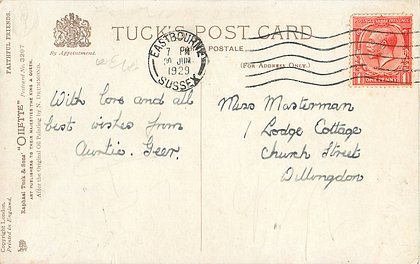 TUCK'S POST CARD
By Appointment.
POSTALE
(FOR ADDRESS ONLY.)
EASTBOURNE
7 PM
30 JUN
1929
SUSSEX
POSTAGE
ONE PENNY
FAITHFUL FRIENDS.
Raphael Tuck & Sons' "OILETTE" Postcard No. 3297
ART PUBLISHERS TO THEIR MAJESTIES THE KING & QUEEN.
After the Original Oil Painting by N. Drummond.
Copyright London.
Printed in England.
With love and all
best wishes from
Auntie. Geer.
Miss Masterman
1 Lodge Cottage
Church Street
Dillingdon